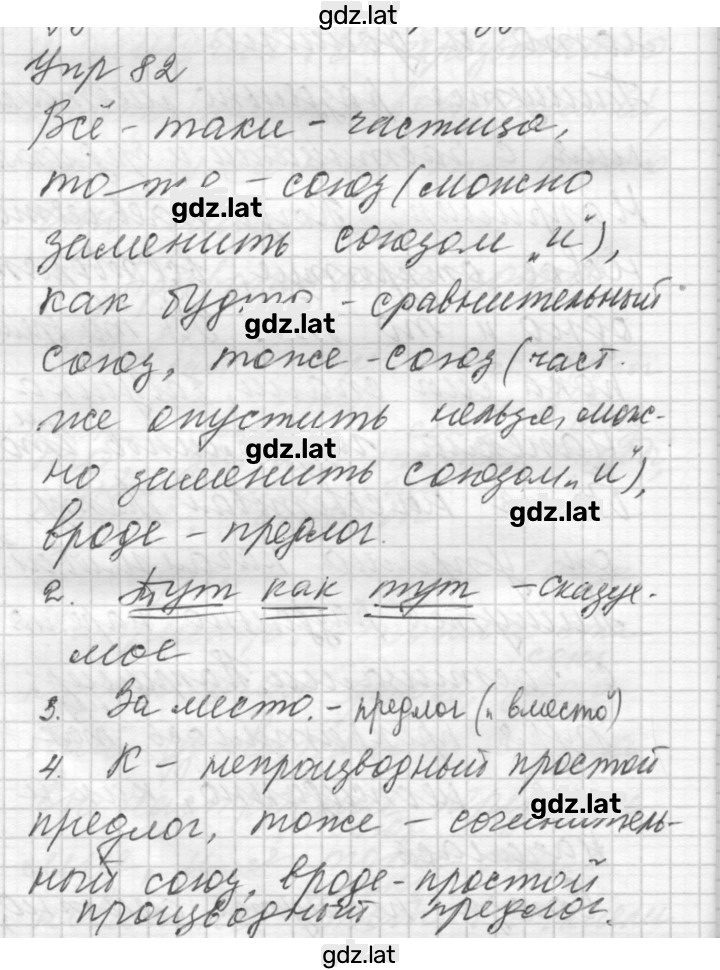 gdz.lat
Упр 82
Всё-таки - частица,
то-же - союз (можно
gdz.lat
заменить союзом „и"),
как будто - сравнительный
gdz.lat
союз, тоже - союз (част.
же опустить нельзя, мож-
gdz.lat
но заменить союзом „и"),
gdz.lat
вроде - предлог.
2. Тут как тут - сказуе-
мое
3. За место. - предлог („вместо")
4. К - непроизводный простой
gdz.lat
предлог, тоже - сочинитель-
ный союз, вроде - простой
производный предлог.
gdz.lat